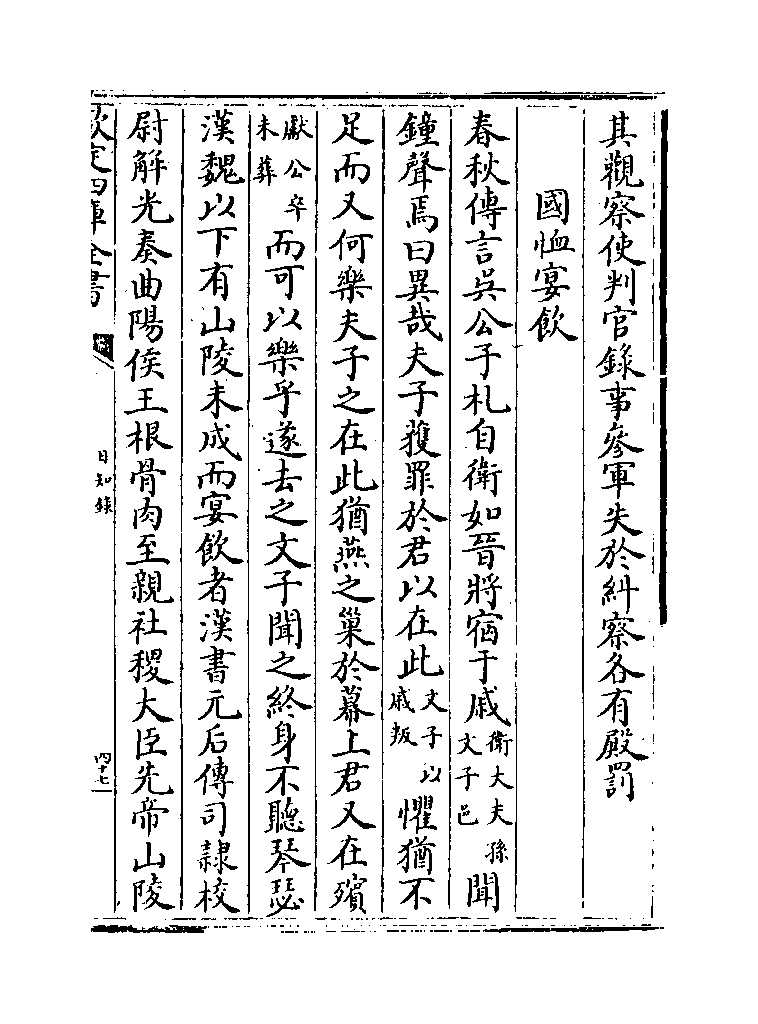 其觀察使判官錄事參軍失於糾察各有殿罰
國恤宴飲
春秋傳言吳公子札自衛如晉將宿于戚衛大夫孫文子邑聞
鐘聲焉曰異哉夫子獲罪於君以在此文子以戚叛懼猶不
足而又何樂夫子之在此猶燕之巢於幕上君又在殯
獻公卒未葬而可以樂乎遂去之文子聞之終身不聽琴瑟
漢魏以下有山陵未成而宴飲者漢書元后傳司隸校
尉解光奏曲陽侯王根骨肉至親社稷大臣先帝山陵
欽定四庫全書
日知錄
四十七